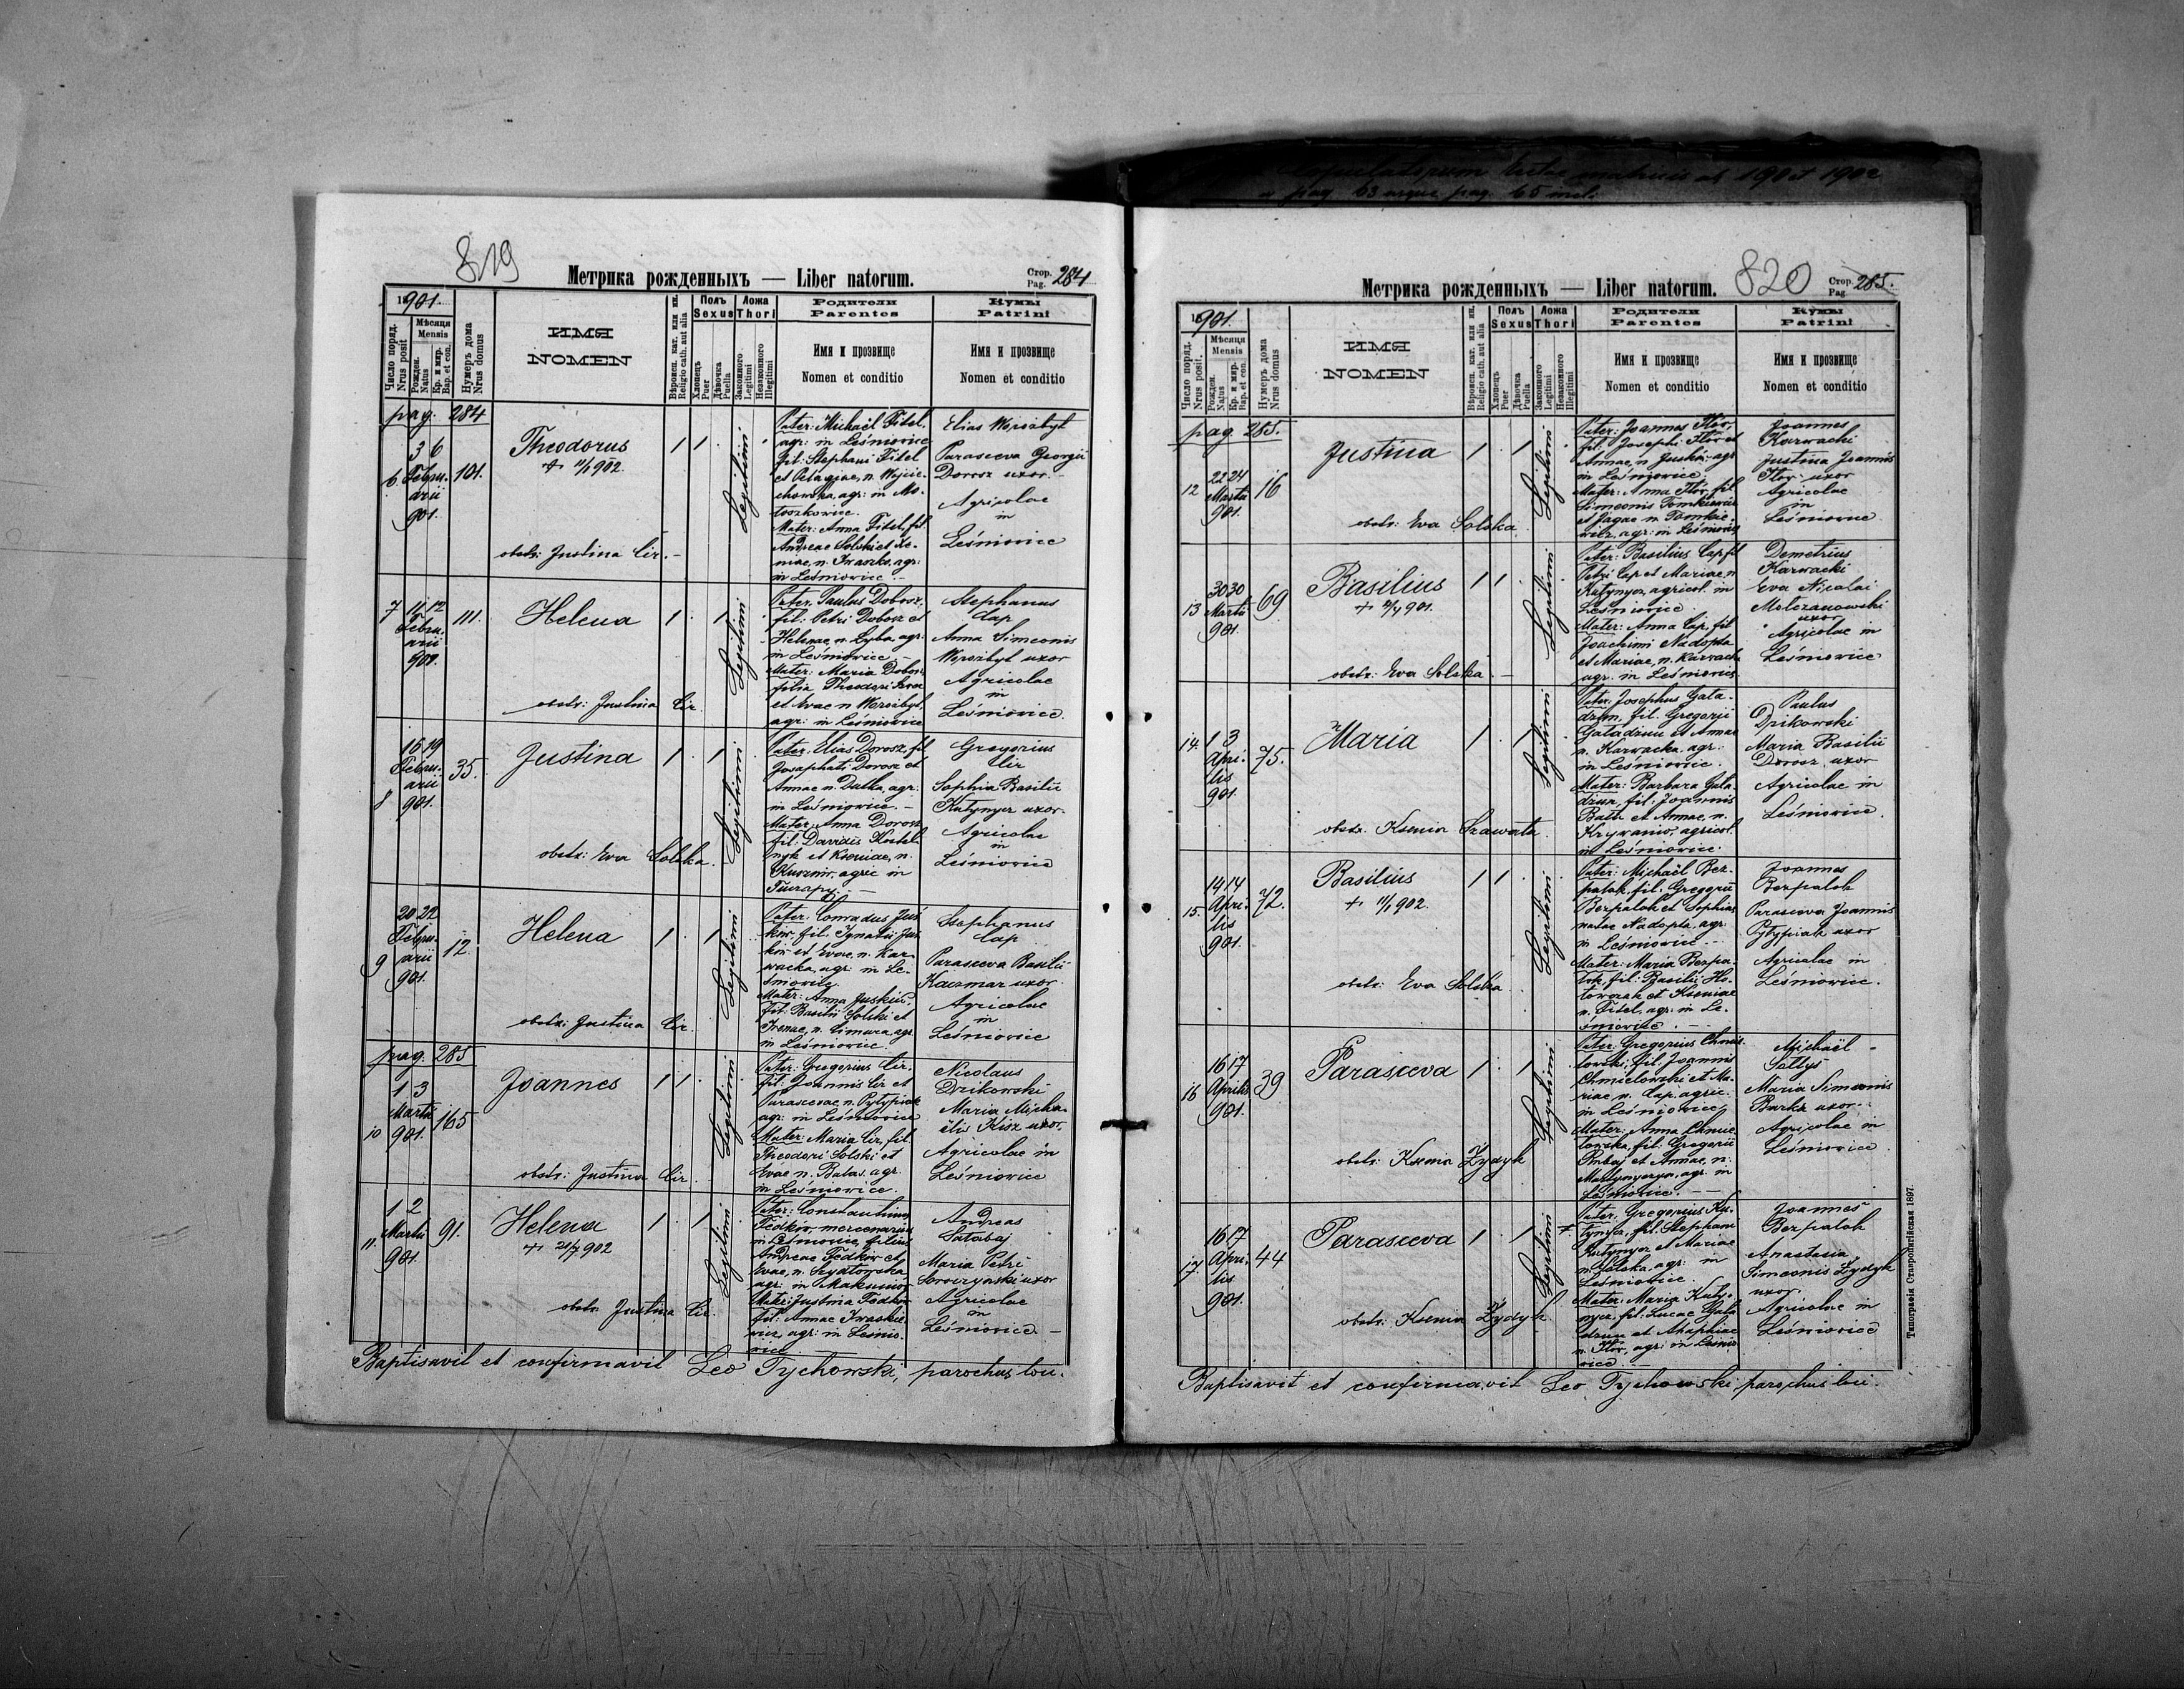 819
Метрика рожденныхъ — Liber natorum.
Стор. Pag. 284
18901.
Число поряд. Nrus posit
Мѣсяця Mensis
Рожден. Natus
Кр. и мир. Bap. et con.
Нумеръ дома Nrus domus
ИМЯ
NOMEN
Вѣроисп. кат. или ин. Religio cath. aut alia
Полъ Sexus
Хлопець Puer
Дѣвочка Puella
Ложа Thori
Законного Legitimi
Незаконного Illegitimi
Родители
Parentes
Имя и прозвище
Nomen et conditio
Кумы
Patrini
Имя и прозвище
Nomen et conditio
pag. 284
6
3 6
Febru-
arii
901.
101.
Theodorus
902.
obstr: Justina Cir. -
1 1
Legitimi
Pater: Michaël Fitel,
agr: in Leśniowice
fil: Stephani Fitel
et Pelagiae, n. Wojcie-
chowska, agr: in Mo-
loszkowice.
Mater: Anna Fitel, fil:
Andreae Solski et Xe-
niae, n. Iwaszko, agr:
in Leśniowice. -
Elias Worobyt
Parasceva Georgii
Dorosz uxor. -
Agricolae
in
Leśniowice
7
11 12
Febru-
arii
901.
111.
Helena
obstr: Justina Cir.
1 1
Legitimi
Pater: Paulus Dobosz,
fil: Petri Dobosz et
Helenae, n. Zyba, agr.
in Leśniowice -
Mater: Maria Dobosz
filia Theodori
et Evae n. Worobyt,
agr: in Leśniowice
Stephanus
Cap
Anna Simeonis
Worobyt uxor
Agricolae
in
Leśniowice.
8
16 19
Febru-
arii
901.
35.
Justina
obstr: Eva Solska.
1 1
Legitimi
Pater: Elias Dorosz, fil.
Josaphati Dorosz et
Annae n. Dutka, agr.
in Leśniowice. -
Mater: Anna Dorosz
fil: Davidis Kostel-
nyk et Kseniae, n.
Kusznir, agric in
Tuczapy. -
Gregorius
Cir
Sophia Basilii
Kutynycz uxor.
Agricolae
in
Leśniowice
9
20 22
Febru-
arii
901.
12.
Helena
obstr: Justina Cir.
1 1
Legitimi
Pater: Conradus Jus-
kiw, fil. Ignatii Jus-
kiw et Evae, n. Kar-
wacka, agr: in Le-
śniowice.
Mater: Anna Juskiw,
fil: Basilii Solski et
Irenae, n. Cimura, agr.
in Leśniowice.
Stephanus
Cap
Parasceva Basilii
Kaczmar uxor.
Agricolae
in
Leśniowice
pag. 285
10
1 3
Martii
901.
165
Joannes
obstr: Justina Cir.
1 1
Legitimi
Pater: Gregorius Cir,
fil: Joannis Cir et
Parascevae, n. Pytypiak
agr: in Leśniowice
Mater: Maria Cir, fil.
Theodori Solski et
Evae n. Balas, agr.
in Leśniowice.
Nicolaus
Dzikowski
Maria Micha-
ëlis Kisz uxor,
Agricolae in
Leśniowice
11.
1 2
Martii
901.
91.
Helena
902
obstr: Justina Cir.
1 1
Legitimi
Pater: Constantinus
Fedkow mercenarius
in Leśniowice, filius
Andreae Fedkow et
Evae, n. Szydłowska
agr: in
Mater: Justina Fedkow
fil: Annae Iwaskie-
wicz, agr: in Leśnio-
wice
Andreas
Sałabaj
Maria Petri
Soroczynski uxor
Agricolae
in
Leśniowice -
Baptisavit et confirmavit Leo Tychowski, parochus loci.
copulatorum 190 et 1902
a pag. 63 usque pag. 65 incl.
820
Метрика рожденныхъ — Liber natorum.
Стор. Pag. 285.
18901.
Число поряд. Nrus posit.
Мѣсяця Mensis
Рожден. Natus
Кр. и мир. Bap. et con.
Нумеръ дома Nrus domus
ИМЯ
NOMEN
Вѣроисп. кат. или ин. Religio cath. aut alia
Полъ Sexus
Хлопець Puer
Дѣвочка Puella
Ложа Thori
Законного Legitimi
Незаконного Illegitimi
Родители
Parentes
Имя и прозвище
Nomen et conditio
Кумы
Patrini
Имя и прозвище
Nomen et conditio
pag. 285.
12
22 24
Martii
901.
16
Justina
obstr: Eva Solska.
1 1
Legitimi
Pater: Joannes Flor,
fil: Josephi Flor et
Annae, n. Juskiw agr
in Leśniowice.
Mater: Anna Flor, fil
Simeonis Tomkiewicz
et Agae n. Tomkie-
wicz, agr: in Leśniowice
Joannes
Karwacki
Justina Joannis
Flor uxor
Agricolae
in
Leśniowice
13
30 30
Martii
901.
69
Basilius
901.
obstr: Eva Solska. -
1 1
Legitimi
Pater: Basilius Cap fil
Petri Cap et Mariae n
Kutynycz, agricol. in
Leśniowice.
Mater: Anna Cap, fil
Joachimi Nadopta
et Mariae, n. Karwacka
agr. in Leśniowice
Demetrius
Karwacki
Eva Nicolai
Motczanowski
uxor
Agricolae in
Leśniowice
14.
1 3
Apri-
lis
901.
75.
Maria
obstr: Ksenia Szawarta.
1 1
Legitimi
Pater: Josephus Gała-
dzun, fil. Gregorii
Gaładzun et Annae
n. Karwacka, agr:
in Leśniowice.
Mater: Barbara Gała-
dzun, fil. Joannis
Bair et Annae, n.
Krywanio, agricol.
in Leśniowice.
Paulus
Dzikowski
Maria Basilii
Dorosz uxor
Agricolae in
Leśniowice.
15.
14 14
Apri-
lis
901.
72.
Basilius
902.
obstr: Eva Solska.
1 1
Legitimi
Pater: Michaël Bez-
palok, fil. Gregorii
Bezpalok et Sophiae
natae Nadopta, agr.
in Leśniowice -
Mater: Maria Bezpa-
lok, fil. Basilii Ho-
towczak et Kseniae
n. Fitel, agr: in Le-
śniowice. -
Joannes
Bezpalok
Parasceva Joannis
Pytypiak uxor
Agricolae in
Leśniowice.
16
16 17
Aprilis
901.
39
Parasceva
obstr: Ksenia Żydyk
1 1
Legitimi
Pater: Gregorius Chmie-
lowski, fil. Joannis
Chmielowski et Ma-
riae n. Cap, agric.
in Leśniowice
Mater: Anna Chmie-
lowska, fil: Gregorii
et Annae, n:
Martynycz, agr. in
Leśniowice. -
Michaël
Sołtys
Maria Simeonis
Burka uxor.
Agricolae in
Leśniowice.
17.
16 17
Apri-
lis
901.
44
Parasceva
obstr: Ksenia Żydyk.
1 1
Legitimi
Pater: Gregorius Ku-
tynycz, fil. Stephani
Kutynycz et Mariae
n. Solska, agr. in
Leśniowice.
Mater: Maria Kuty-
nycz, fil. Lucae Gała-
dzun et Ahaphiae
n. Flor, agr: in Leśnio-
wice. -
Joannes
Bezpalok
Anastasia
Simeonis Żydyk
uxor.
Agricolae in
Leśniowice
Baptisavit et confirmavit Leo Tychowski parochus loci.
Типографія Ставропигійская 1897.